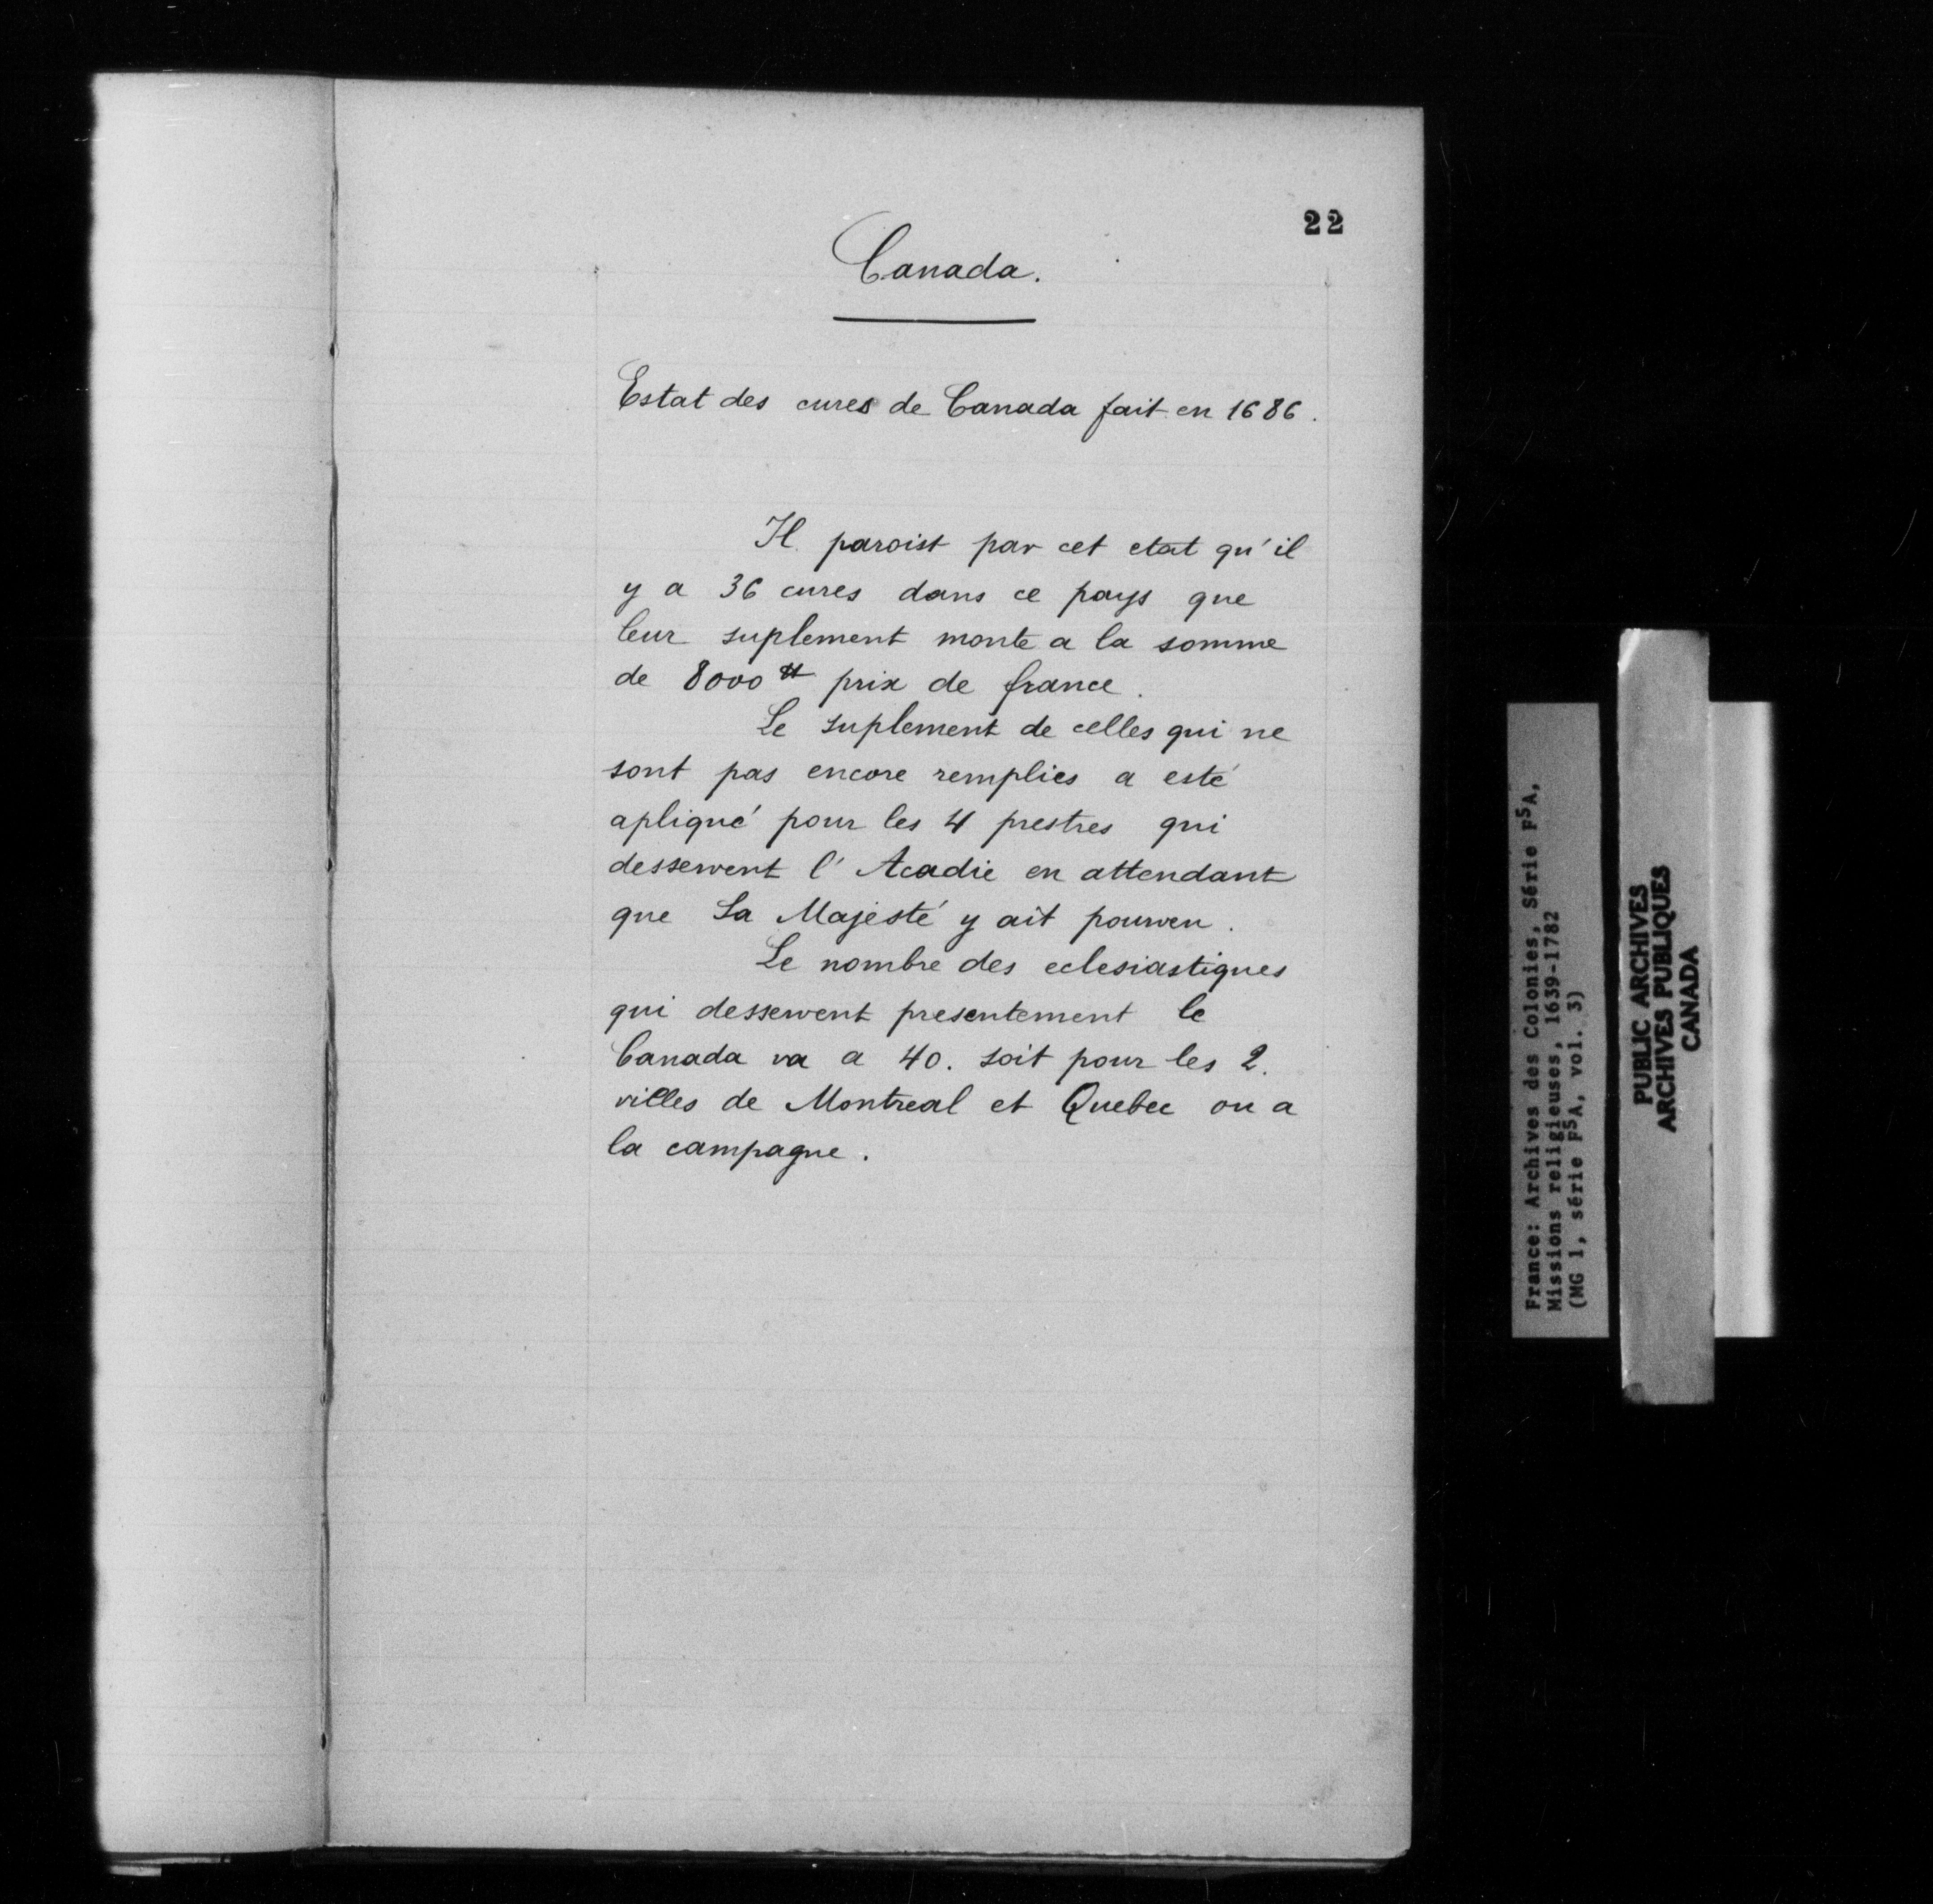 22
Canada.
Estat des cures de Canada fait en 1686.
Il paroist par cet etat qu'il
y a 36 cures dans ce pays que
leur suplement monte a la somme
de 8000 ₶ prix de france.
Le suplement de celles qui ne
sont pas encore remplies a esté
apliqué pour les 4 prestres qui
desservent l'Acadie en attendant
que Sa Majesté y ait pourveu.
Le nombre des eclesiastiques
qui desservent presentement le
Canada va a 40. soit pour les 2.
villes de Montreal et Quebec ou a
la campagne.
France: Archives des Colonies, Série F5A,
Missions religieuses, 1639-1782
(MG 1, série F5A, vol. 3)
PUBLIC ARCHIVES
ARCHIVES PUBLIQUES
CANADA